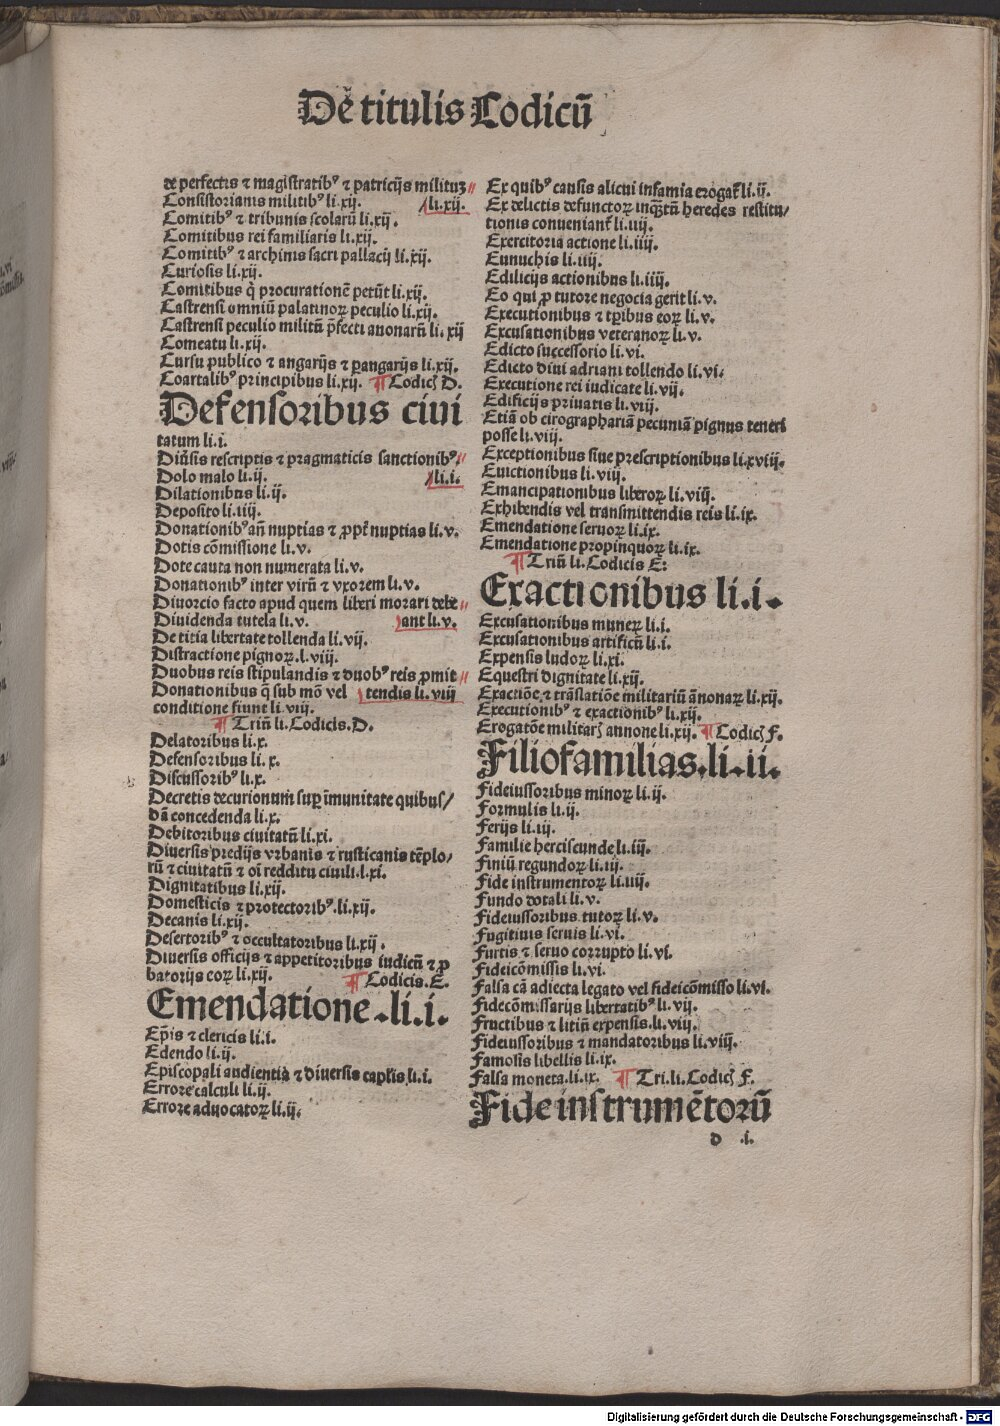 De titulis Codicū
de perfectis ⁊ magistratibꝰ ⁊ patricijs milituꝫ
Consistorianis militibꝰ li.xij. li.xij.
Comitibꝰ ⁊ tribunis scolarū li.xij.
Comitibus rei familiaris li.xij.
Comitibꝰ ⁊ archinis sacri pallacij li.xij.
Curiosis li.xij.
Comitibus q̇ procurationē petūt li.xij.
Castrensi omniū palatinoꝝ peculio li.xij.
Castrensi peculio militū p̄fecti anonarū li.xij
Comeatu li.xij.
Cursu publico ⁊ angarijs ⁊ ꝑangarijs li.xij.
Coartalibꝰ principibus li.xij. ¶ Codicꝭ D.
Defensoribus ciui
tatum li.i.
Diūsis rescriptis ⁊ pragmaticis sanctionibꝰ.
Dolo malo li.ij. li.i.
Dilationibus li.ij.
Deposito li.iiij.
Donationibꝰ añ nuptias ⁊ ꝓpt̃ nuptias li.v.
Dotis cōmissione li.v.
Dote cauta non numerata li.v.
Donationibꝰ inter virū ⁊ vxorem li.v.
Diuorcio facto apud quem liberi morari debe
Diuidenda tutela li.v. ant li.v.
De titia libertate tollenda li.vij.
Distractione pignoꝝ.l.viij.
Duobus reis stipulandis ⁊ duobꝰ reis ꝓmit
Donationibus q̄ sub mō vel tendis li.viij
conditione fiunt li.viij.
¶ Triū li.Codicis.D.
Delatoribus li.x.
Defensoribus li.x.
Discussoribꝰ li.x.
Decretis decurionum suꝑ īmunitate quibus/
dā concedenda li.x.
Debitoribus ciuitatū li.xi.
Diuersis predijs vrbanis ⁊ rusticanis tēplo/
rū ⁊ ciuitatū ⁊ oī redditu ciuili.l.xi.
Dignitatibus li.xij.
Domesticis ⁊ protectoribꝰ.li.xij.
Decanis li.xij.
Desertoribꝰ ⁊ occultatoribus li.xij.
Diuersis officijs ⁊ appetitoribus iudicū ⁊ ꝓ
batorijs eoꝝ li.xij. ¶ Codicis.E.
Emendatione .li.i.
Ep̄is ⁊ clericis li.i.
Edendo li.ij.
Episcopali audientia ⁊ diuersis capt̄is li.i.
Errore calculi li.ij.
Errore aduocatoꝝ li.ij.
Ex quibꝰ causis alicui infamia erogat̃ li.ij.
Ex delictis defunctoꝝ inq̄tū heredes restitu/
tionis conueniant̃ li.iiij.
Exercitoria actione li.iiij.
Eunuchis li.iiij.
Edilicijs actionibus li.iiij.
Eo qui ꝓ tutore negocia gerit li.v.
Executionibus ⁊ tꝑibus eoꝝ li.v.
Excusationibus veteranoꝝ li.v.
Edicto successorio li.vi.
Edicto diui adriani tollendo li.vi.
Executione rei iudicate li.vij.
Edificijs priuatis li.viij.
Etiā ob cirographariā pecuniā pignus teneri
posse li.viij.
Exceptionibus siue prescriptionibus li.xviij.
Euictionibus li.viij.
Emancipationibus liberoꝝ li.viij.
Exhibendis vel transmittendis reis li.ix.
Emendatione seruoꝝ li.ix.
Emendatione propinquoꝝ li.ix.
¶ Triū li.Codicis E:
Exactionibus li.i.
Excusationibus muneꝝ li.i.
Excusationibus artificū li.i.
Expensis ludoꝝ li.xi.
Equestri dignitate li.xij.
Exactiōe ⁊ trāslatiōe militariū ānonaꝝ li.xij.
Executionibꝰ ⁊ exactionibꝰ li.xij.
Erogatōe militarꝭ annone li.xij. ¶ Codicꝭ F.
Filiofamilias.li.ii.
Fideiussoribus minoꝝ li.ij.
Formulis li.ij.
Ferijs li.iij.
Familie herciscunde li.iij.
Finiū regundoꝝ li.iij.
Fide instrumentoꝝ li.iiij.
Fundo dotali li.v.
Fideiussoribus tutoꝝ li.v.
Fugitiuis seruis li.vi.
Furtis ⁊ seruo corrupto li.vi.
Fideicōmissis li.vi.
Falsa cā adiecta legato vel fideicōmisso li.vi.
Fidecōmissarijs libertatibꝰ li.vij.
Fructibus ⁊ litiū expensis.li.viij.
Fideiussoribus ⁊ mandatoribus li.viij.
Famosis libellis li.ix.
Falsa moneta.li.ix. ¶ Tri.li.Codicꝭ F.
Fide instrumētorū
d .i.
Digitalisierung gefördert durch die Deutsche Forschungsgemeinschaft - DFG